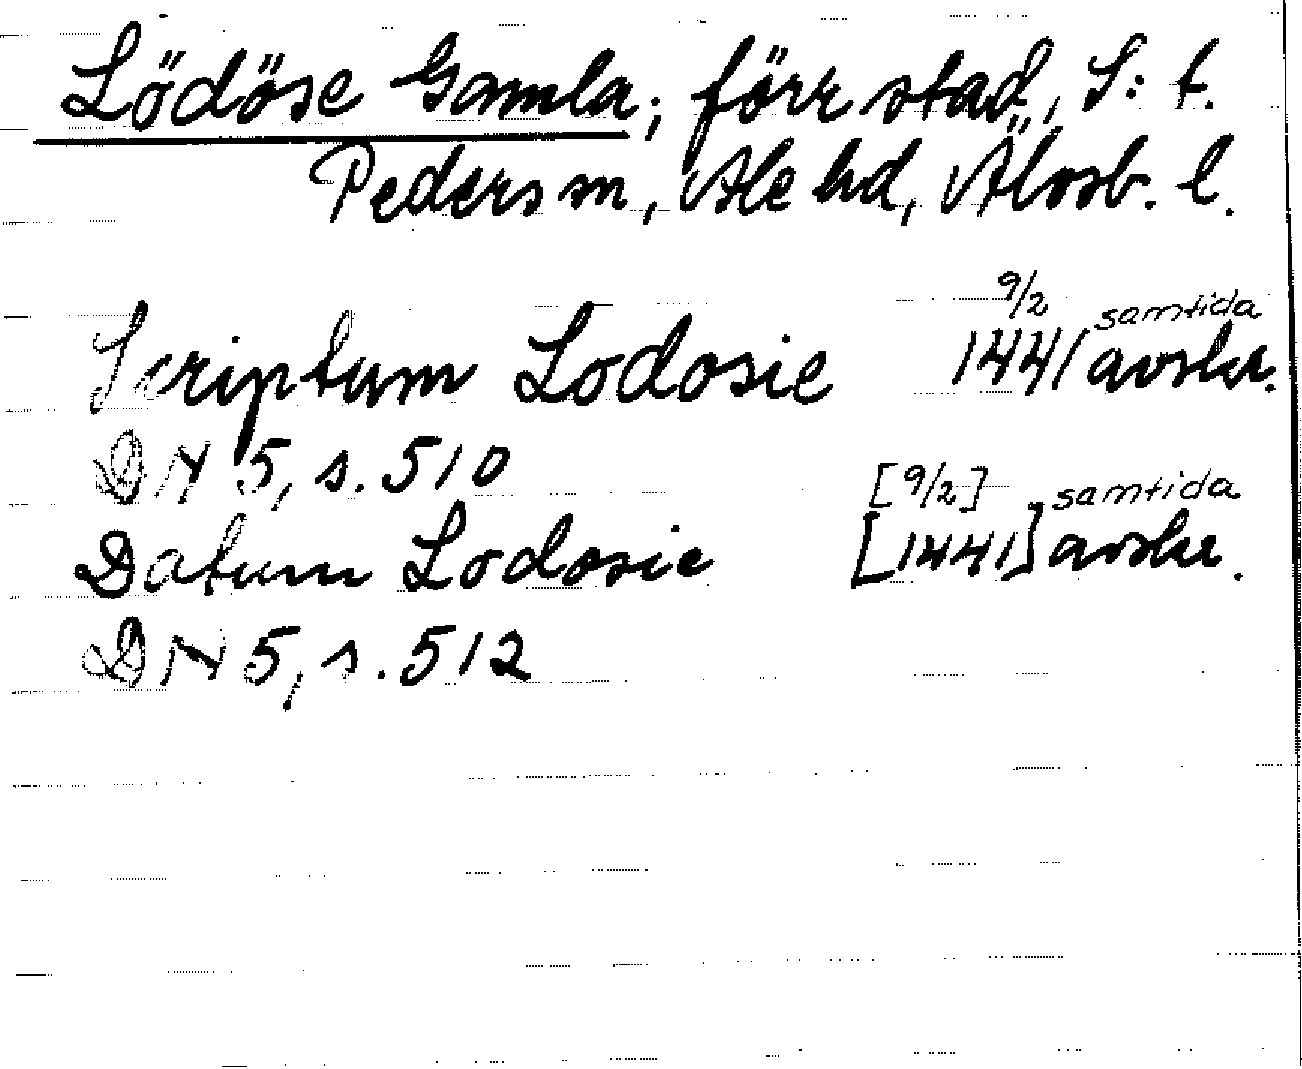 Lödöse Gamla, förr stad, S:t
Peders sn, Ale hd, Älvsb. l.
Scriptum Lodosie 9/2 1441 samtida avskr.
DN 5, s. 510
Datum Lodosie [9/2] [1441] samtida avskr.
DN 5, s. 512